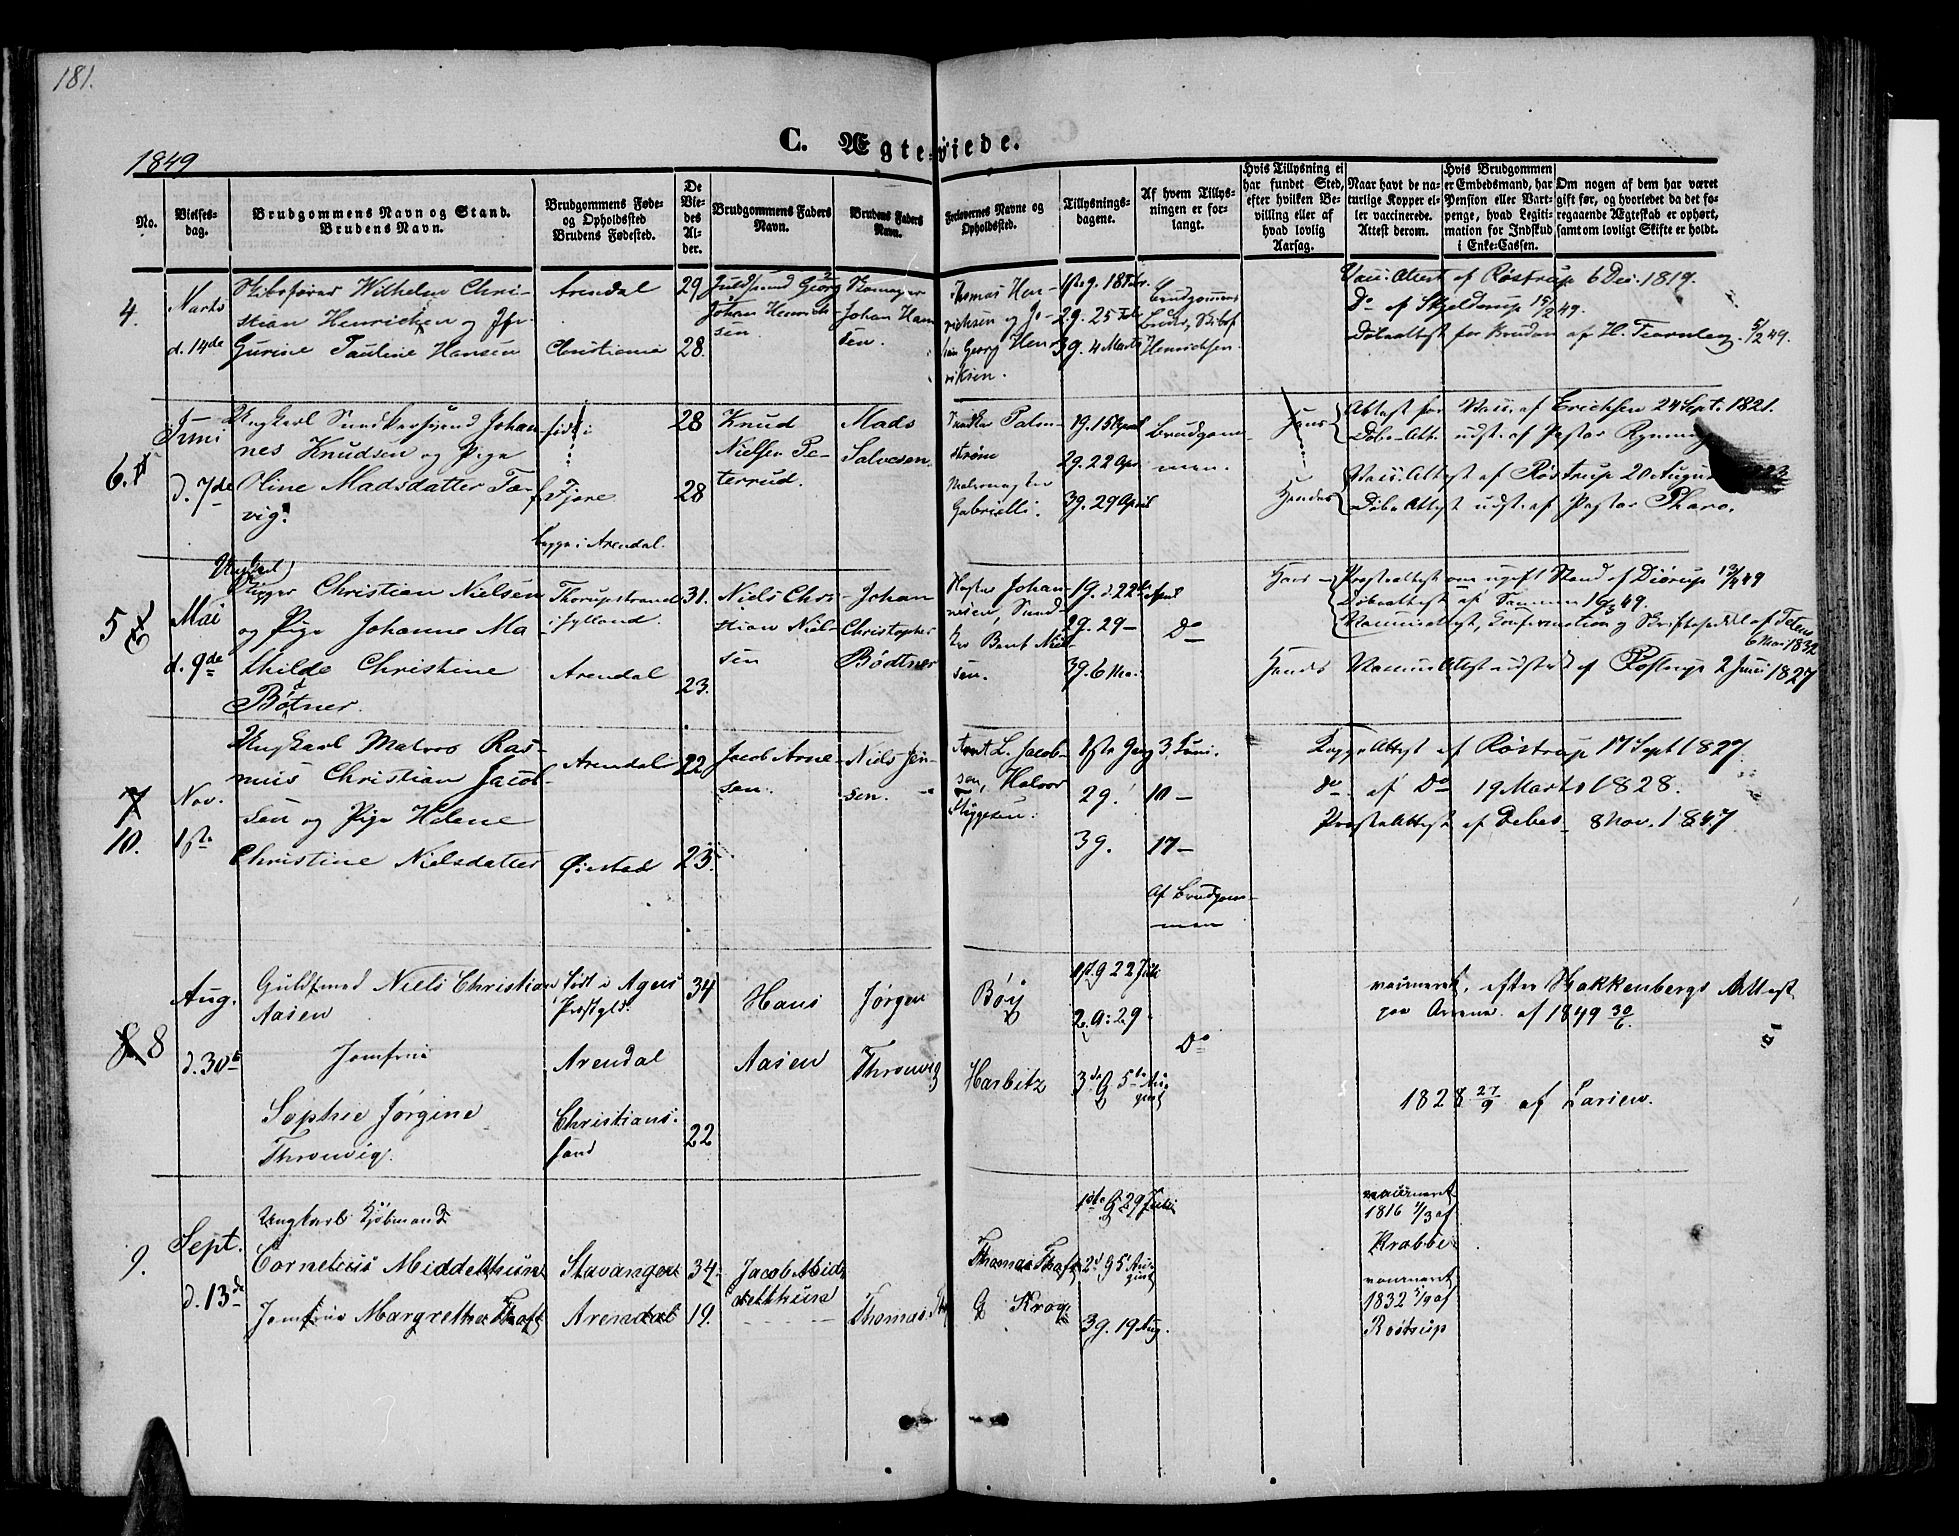 181.
C. Ægteviede.
1849
No.
Vielses-
dag.
Brudgommens Navn og Stand.
Brudens Navn.
Brudgommens Føde-
og Opholdssted
Brudens Fødested.
De
Vie-
des
Al-
der.
Brudgommens Faders
Navn.
Brudens Faders
Navn.
Forlovernes Navne og
Opholdssted.
Tillysnings-
dagene.
Af hvem Tillys-
ningen er for-
langt.
Hvis Tillysning ei
har fundet Sted,
efter hvilken Be-
villing eller af
hvad lovlig
Aarsag.
Naar havt de na-
turlige Kopper el-
ler vaccinerede.
Attest derom.
Hvis Brudgommen
er Embedsmand, har
Pension eller Vart-
penge, hvad Legiti-
mation for Indskud
i Enke-Cassen.
Om nogen af dem har været
gift før, og hvorledet da det fo-
regaaende Ægteskab er ophørt,
samt om lovligt Skifte er holdt.
4.
Marts
d. 14de
Skibsfører Wilhelm Chri-
stian Henricksen og Jfr.
Gurine Pauline Hansen
Arendal
Christiania
29
28.
Georg
Johan Henrich-
sen
Johan Han
sen.
Thomas Hen-
richsen og Jo-
han Georg Hen-
riksen.
1ste g. 18 Febr.
2 g. 25 Feb
3 g. 4 Marts
Brudgommens
Henrichsen
Vacc. Attest af Røstrup 6 Dec. 1819.
Do af Skjelderup 15/2 49.
Døbeattest for Bruden af H. 5/2 49.
6.
Juni
d. 7de
Ungkarl Snedkersvend Johan
nes Knudsen og Pige
Oline Madsdatter Ta-
vig.
født i
Fjære
begge i Arendal.
28
28
Knud
Nielsen Pe-
terrud.
Mads
Salvesen.
Snedker Palm-
strøm
Gabrielli.
1 g. 15 April
2 g. 22 Apr.
3 g. 29 April
Brudgom-
men.
Hans
Hendes
Attest for Vacc. af Erichsen 24 Sept. 1821.
Døbe Att. udst. af Pastor Rynning
Vacc. Attest af Røstrup 20 August
Døbe Attest udst. af Pastor Tharo.
5
Mai
d. 9de
Ungkarl
Christian Nielsen
og Pige Johanne Ma
thilde Christine
Bødtner.
Thorupstrand
i Jylland.
Arendal
31.
23.
Niels Chri-
stian Niel-
sen
Johan
Christopher
Bødtner
Johan-
nesen, Sned-
ker Bent Niel
sen.
1 g. d. 22de April
2 g. 29 —
3 g. 6 Mai
Do
Hans
Hendes
Præsteattest om ugift Stand af Diørup 13/4 49
Døbeattest af Samme 10/3 49.
Vaccineattest, Confirmation og Skriftseddel af Tetens
6 Mai 1832
Vaccine Attest udstedt af Røstrup 2 Juni 1827
7
10.
Nov.
1ste
Ungkarl Matros Ras-
mus Christian Jacob-
sen og Pige Helene
Christine Nielsdatter
Arendal
Øiestad
22
25.
Jacob Arne
sen.
Niels Jen-
sen.
Arnt L. Jacob-
sen, Halvor
Thyggesen.
1ste Gang 3 Juni.
2 g. 10 —
3 g. 17 —
Af Brudgom-
men
Koppe Attest af Røstrup 17 Sept 1827.
do. af Do 19 Marts 1828.
Præste Attest af Debes 8 Nov. 1847
8
Aug.
d. 30te
Guldsmed Niels Christian
Aasen
Jomfrue
Sophie Jørgine
Thronvig.
Født i Agers
Præstgld.
Arendal
Christians-
sand
34
22
Hans
Aasen
Jørgen
Thronvig
Bøy
Harbitz
1st. g 22 Juli
2. G: 29
3de G 5te Au-
gust
Do
vaccineret, efter Stakkenbergs Attest
paa Armen. af 1849 30/6.
1828 27/9 af Larsen.
9.
Sept.
d. 13de
Ungkarl Kjøbmand
Cornelius Middelthun
Jomfrue Margrethe Thaft
Stavanger
Arendal
34
19.
Jacob Mid-
delthun
Thomas
Thomas Thaft
G Krog
1ste G 29 Juli
2d G 5t Au-
gust
3 g. 19 Aug.
vaccineret
1816 1/3 af
Krabbe
vaccineret
1832 3/9 af
Røstrup